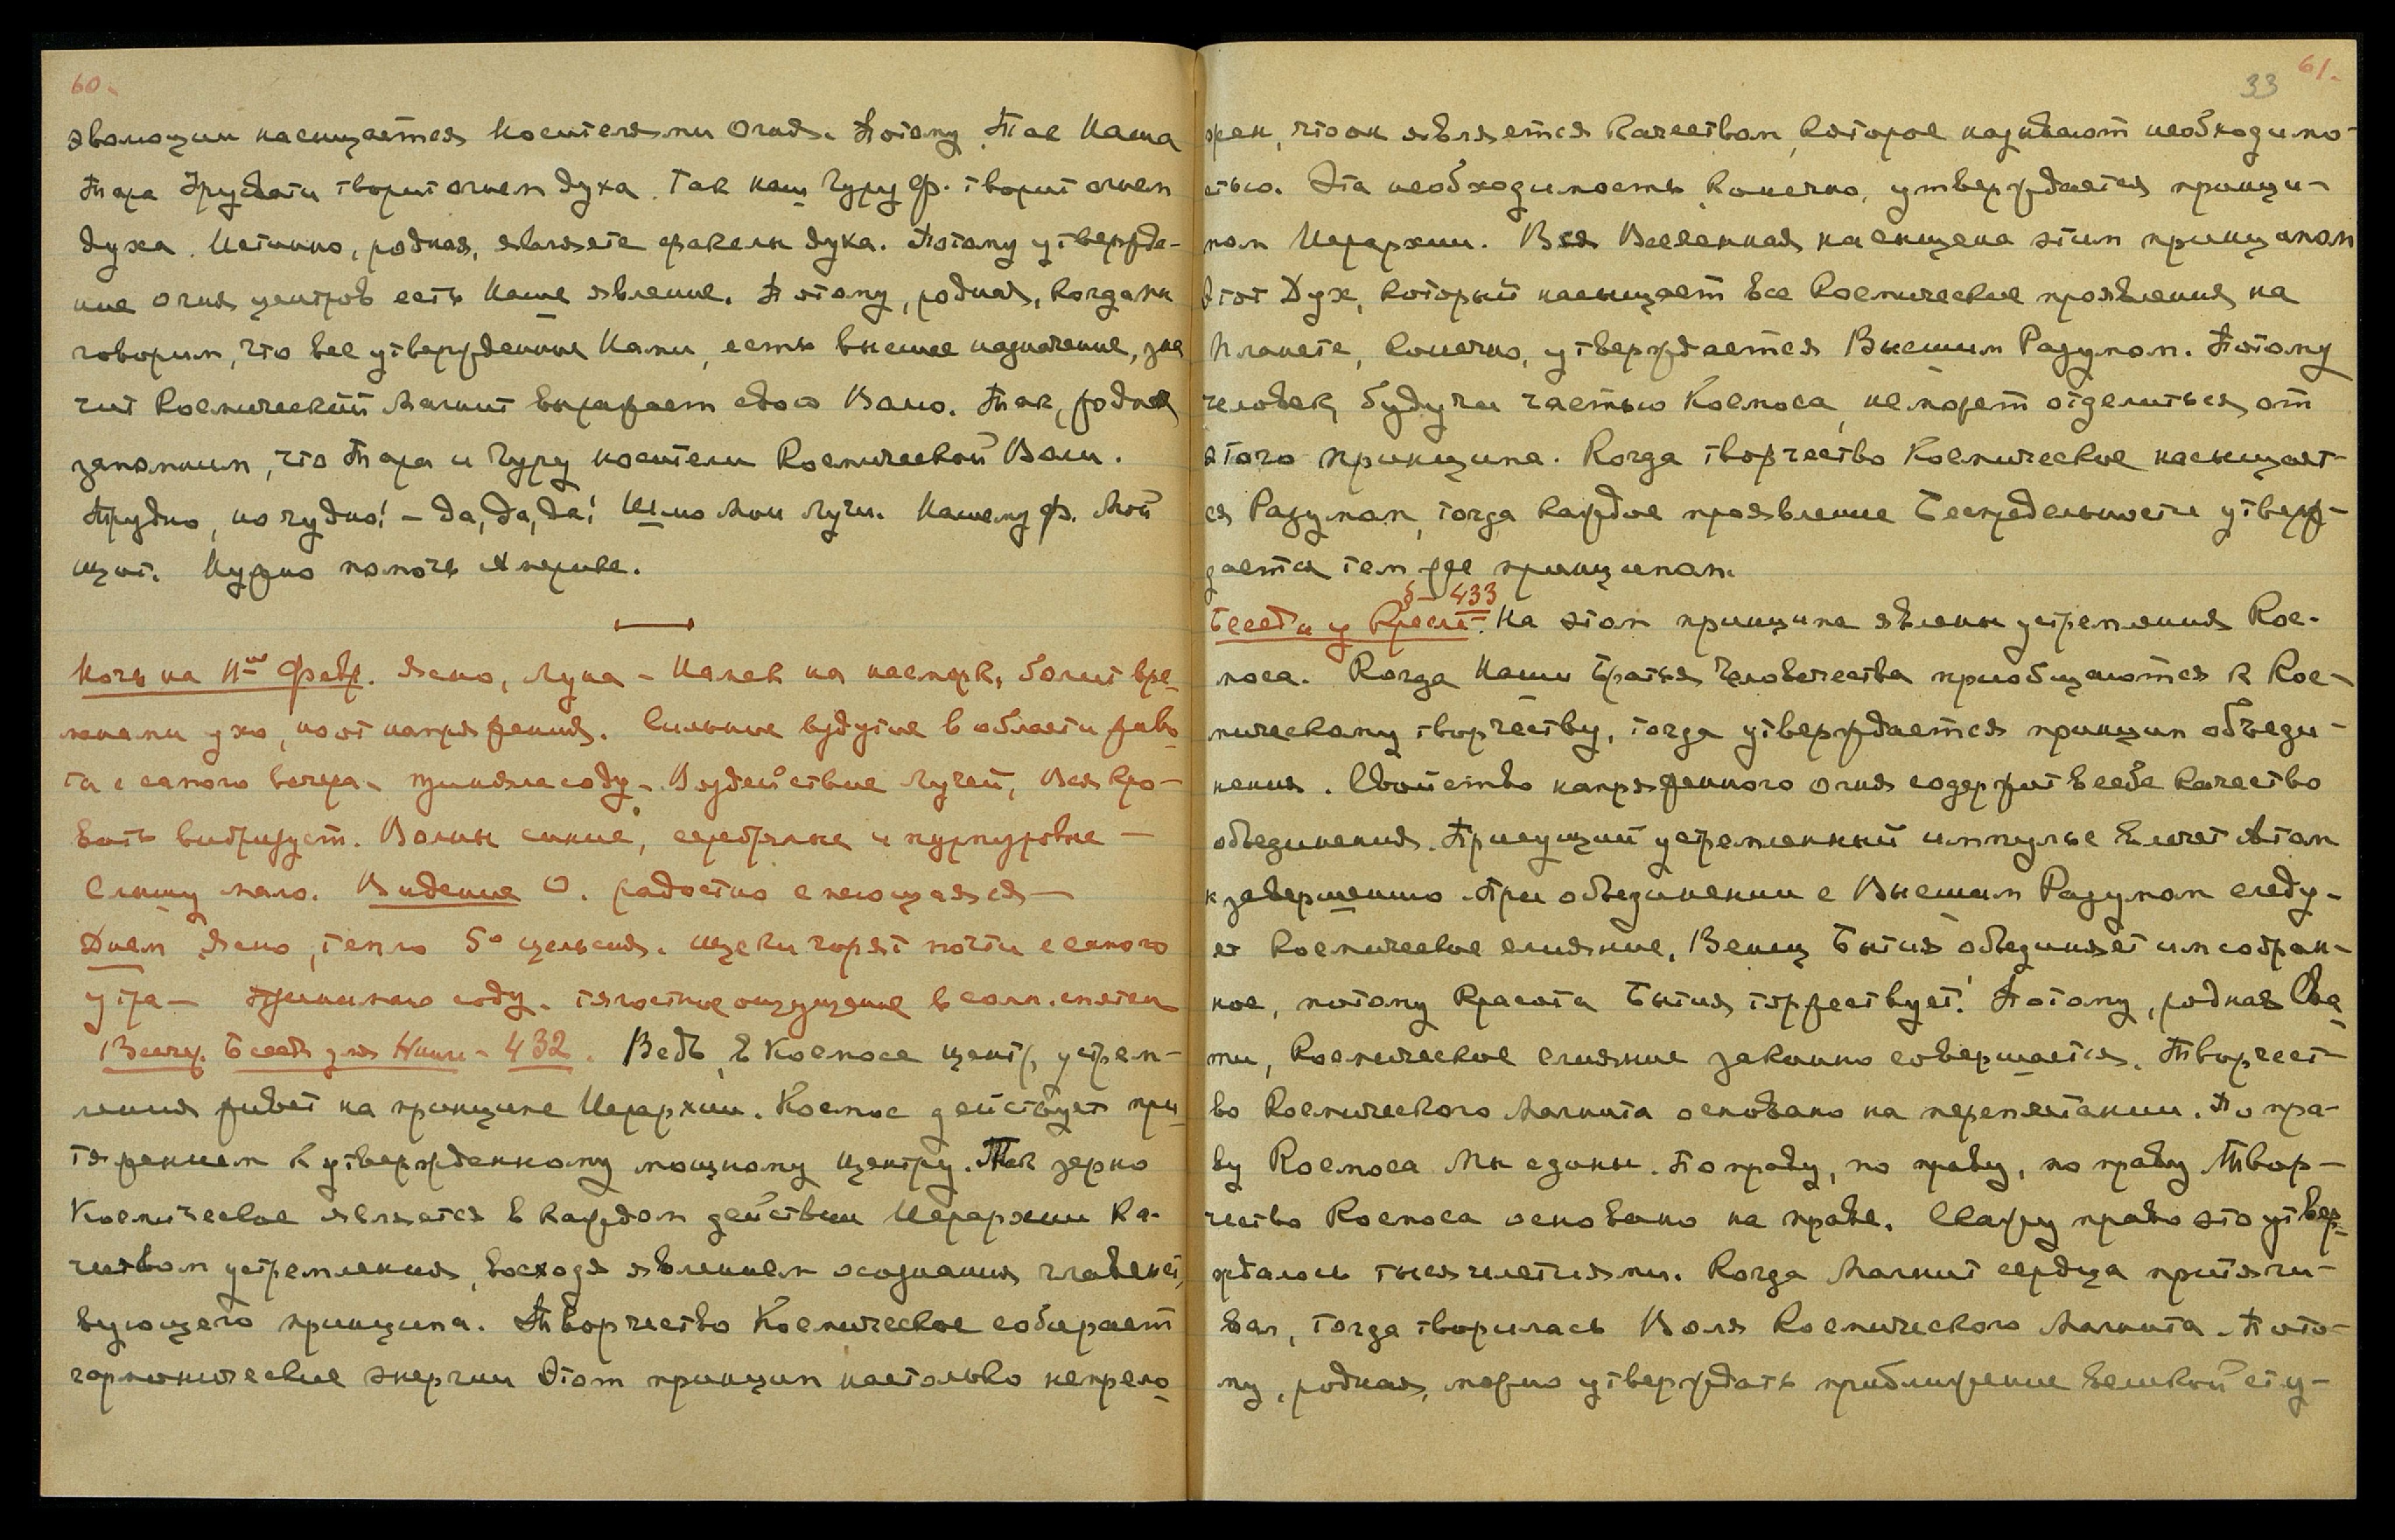 60.
эволюции насыщается Носителями Огня. Потому Так Наша
Тара Урусвати творит огнем духа. Так наш Гуру Ф. творит огнем
духа. Истинно, родная, являете факелы духа. Потому утвержде-
ние Огня центров есть Наше явление. Потому, родная, когда мы
говорим, что все утвержденные Нами, есть высшее назначение, зна
чит Космический Магнит выражает свою Волю. Так, родная
запомним, что Тара и Гуру носители Космической Воли.
Трудно, но чудно! – да, да, да! Шлю Мои Лучи. Нашему Ф. Мой
щит. Нужно помочь Америке.
Ночь на 11ое Февр. Ясно, Луна – Намек на насморк, болит вре-
менами ухо, но от напряжения. Сильное вздутие в области живо
та с самого вечера – приняла соду – Воздействие Лучей, Вся кро-
вать вибрирует. Волны синие, серебряные и пурпуровые –
Слышу мало. Видение О. радостно смеющаяся –
Днем Ясно, тепло 5° цельсия. Щеки горят почти с самого
утра – Принимаю соду. Тягостное ощущение в солн. сплетен
Вечер. Беседа для Книги – 432. Ведь, в Космосе центр устрем-
ления живет на принципе Иерархии. Космос действует при
тяжением к утвержденному мощному центру. Так зерно
Космическое является в каждом действии Иерархии ка-
чеством устремления, восходя явлением осознания главенст
вующего принципа. Творчество Космическое собирает
гармонические энергии Этот принцип настолько непрело
33 61.
жен, что он является качеством, которое называют необходимо-
стью. Эта необходимость, конечно, утверждается принци-
пом Иерархии. Вся Вселенная насыщена этим принципом
Этот Дух, который насыщает все Космические проявления на
планете, конечно, утверждается Высшим Разумом. Потому
человек, будучи частью Космоса, не может отделиться от
этого принципа. Когда творчество Космическое насыщает-
ся Разумом, тогда каждое проявление Беспредельности утверж-
дается тем же принципом.
§ – 433
Беседа у Кресла. На этом принципе явлены устремления Кос-
моса. Когда Наши Братья Человечества приобщаются к Кос-
мическому творчеству, тогда утверждается принцип объеди-
нения. Свойство напряженного огня содержит в себе качество
объединения. Присущий устремленный импульс влечет Атом
к завершению. При объединении с Высшим Разумом следу-
ет Космическое слияние, Венец Бытия объединяет им собран-
ное, потому Красота Бытия торжествует! Потому, родная Сва
ти, Космическое слияние законно совершается. Творчест-
во Космического Магнита основано на переметании. По пра-
ву Космоса Мы едины. По праву, по праву, по праву Твор-
чество Космоса основано на праве. Скажу право это утвер-
ждалось тысячелетиями. Когда Магнит сердца притяги-
вал, тогда творилась Воля Космического Магнита. Пото-
му, родная, можно утверждать приближение великой сту-